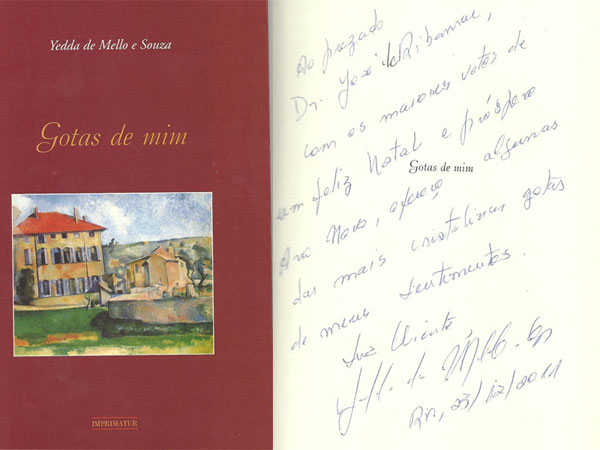 Yedda de Mello e Souza
Gotas de mim
IMPRIMATUR
Ao prezado
Dr. José de Ribamar,
com os maiores votos de
um feliz Natal e próspero
Gotas de mim
Ano Novo, ofereço algumas
das mais cristalinas gotas
de meus sentimentos.
de Mello
23/12/2011